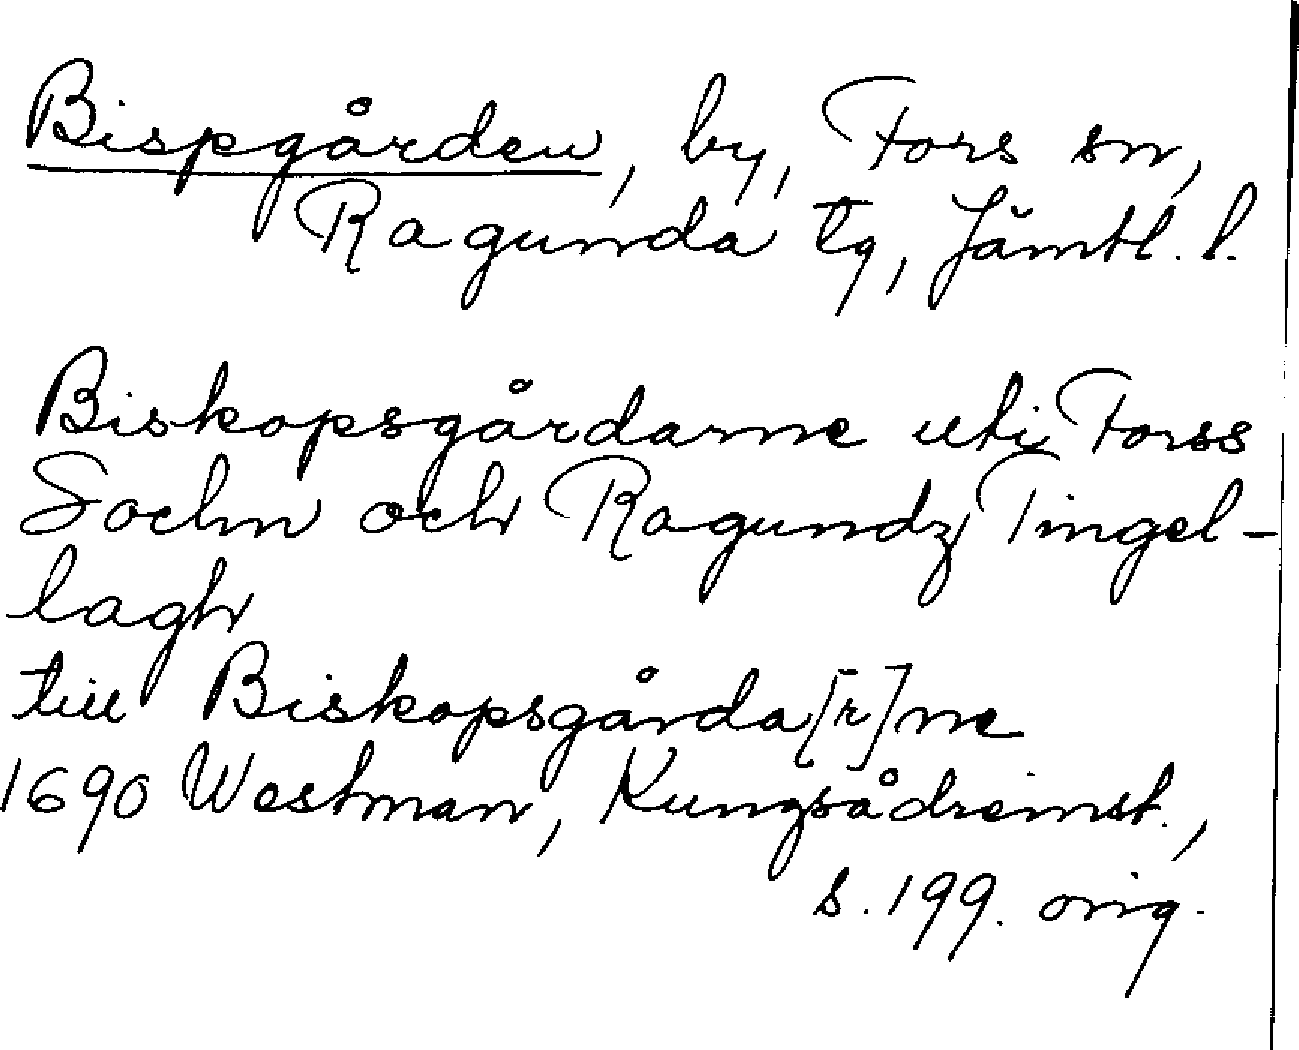 Bispgården, by, Fors sn,
Ragunda tg, Jämtl. l.
Biskopsgårdarne uti Forss
Sochn och Ragundz Tingel-
lagh
till Biskopsgårda[r]ne
1690 Westman, Kungsådreinst.,
s. 199. orig.